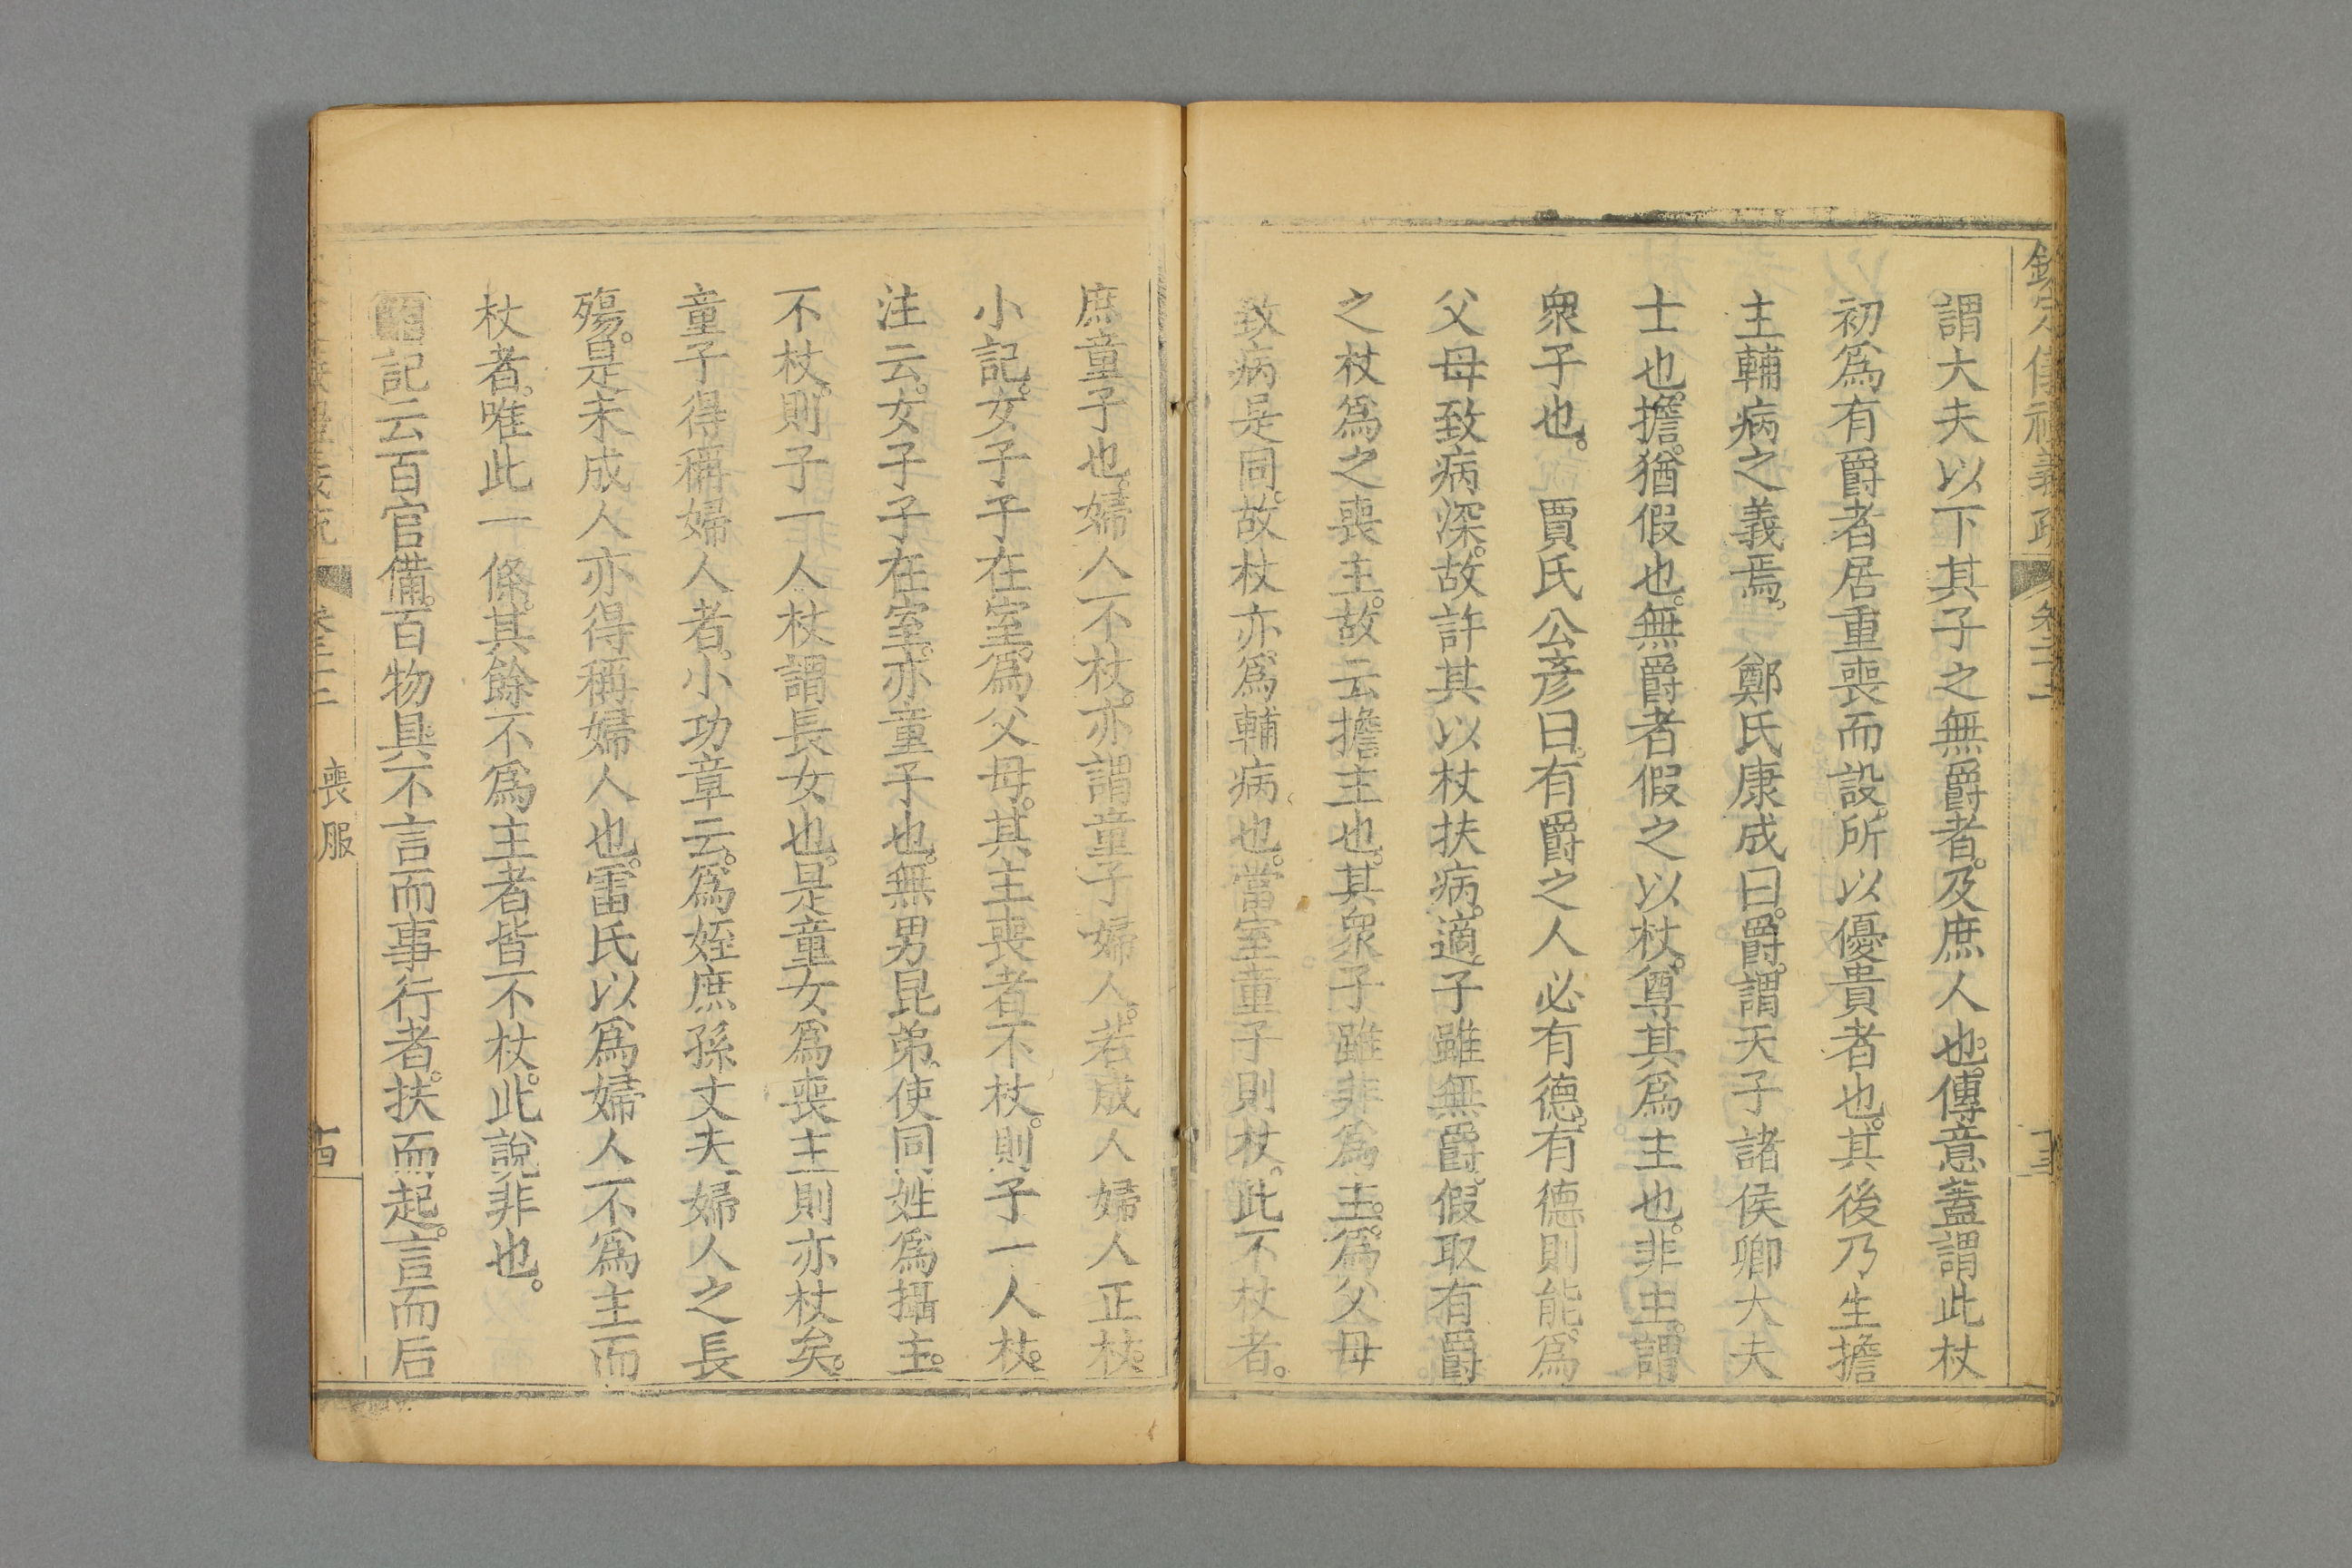 欽定儀禮義疏 卷二十 十三
謂大夫以下其子之無爵者。及庶人也。傳意蓋謂此杖
初爲有爵者居重喪而設。所以優貴者也。其後乃生擔
主輔病之義焉。 鄭氏康成曰。爵。謂天子諸侯卿大夫
士也。擔。猶假也。無爵者假之以杖。尊其爲主也。非主。謂
衆子也。 賈氏公彦曰。有爵之人必有德。有德則能爲
父母致病深。故許其以杖扶病。適子雖無爵。假取有爵
之杖爲之喪主。故云擔主也。其衆子雖非爲主。爲父母
致病是同。故杖亦爲輔病也。當室童子則杖。此不杖者。
庶童子也。婦人不杖。亦謂童子婦人。若成人婦人正杖。
小記。女子子在室。爲父母。其主喪者不杖。則子一人杖。
注云。女子子在室。亦童子也。無男昆弟。使同姓爲攝主。
不杖。則子一人杖。謂長女也。是童女爲喪主則亦杖矣。
童子得稱婦人者。小功章云。爲姪庶孫丈夫婦人之長
殤。是未成人亦得稱婦人也。雷氏以爲婦人不爲主而
杖者。唯此一條。其餘不爲主者皆不杖。此說非也。
記云百官備。百物具。不言而事行者。扶而起。言而后
喪服 十四